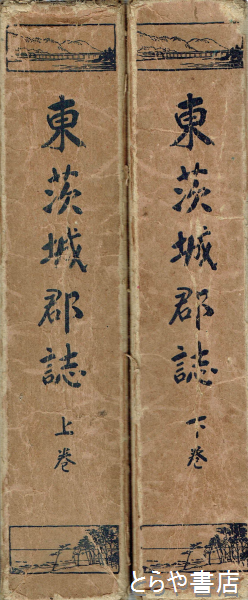 東茨城郡誌 下巻
東茨城郡誌 上巻
とらや書店